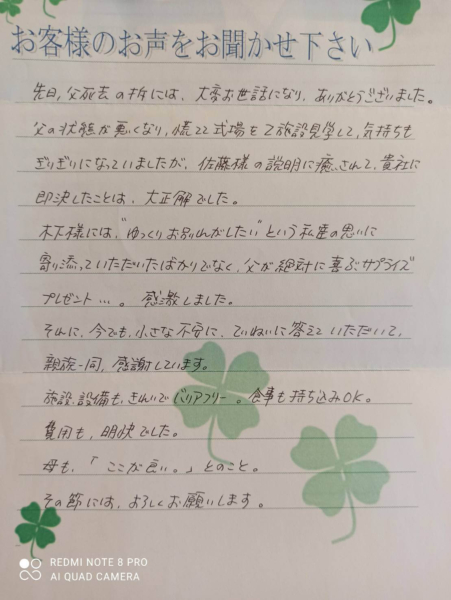 お客様のお声をお聞かせ下さい
先日、父死去の折には、大変お世話になり、ありがとうございました。
父の状態が悪くなり、慌てて式場を2施設見学して、気持ちも
ぎりぎりになっていましたが、佐藤様の説明に癒されて、貴社に
即決したことは、大正解でした。
木下様には、"ゆっくりお別れがしたい"という私達の思いに
寄り添っていただいたばかりでなく、父が絶対に喜ぶサプライズ
プレゼント…。感激しました。
それに、今でも、小さな不安に、ていねいに答えていただいて、
親族一同、感謝しています。
施設、設備も、きれいでバリアフリー。食事も持ち込みOK。
費用も、明快でした。
母も、「ここが良い。」とのこと。
その節には、よろしくお願いします。
REDMI NOTE 8 PRO
AI QUAD CAMERA